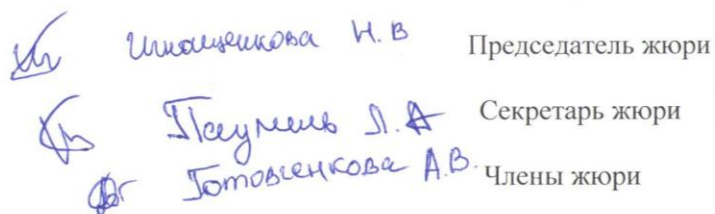 Игнащенкова Н.В Председатель жюри
Л.А Секретарь жюри
Готовченкова А.В. Члены жюри